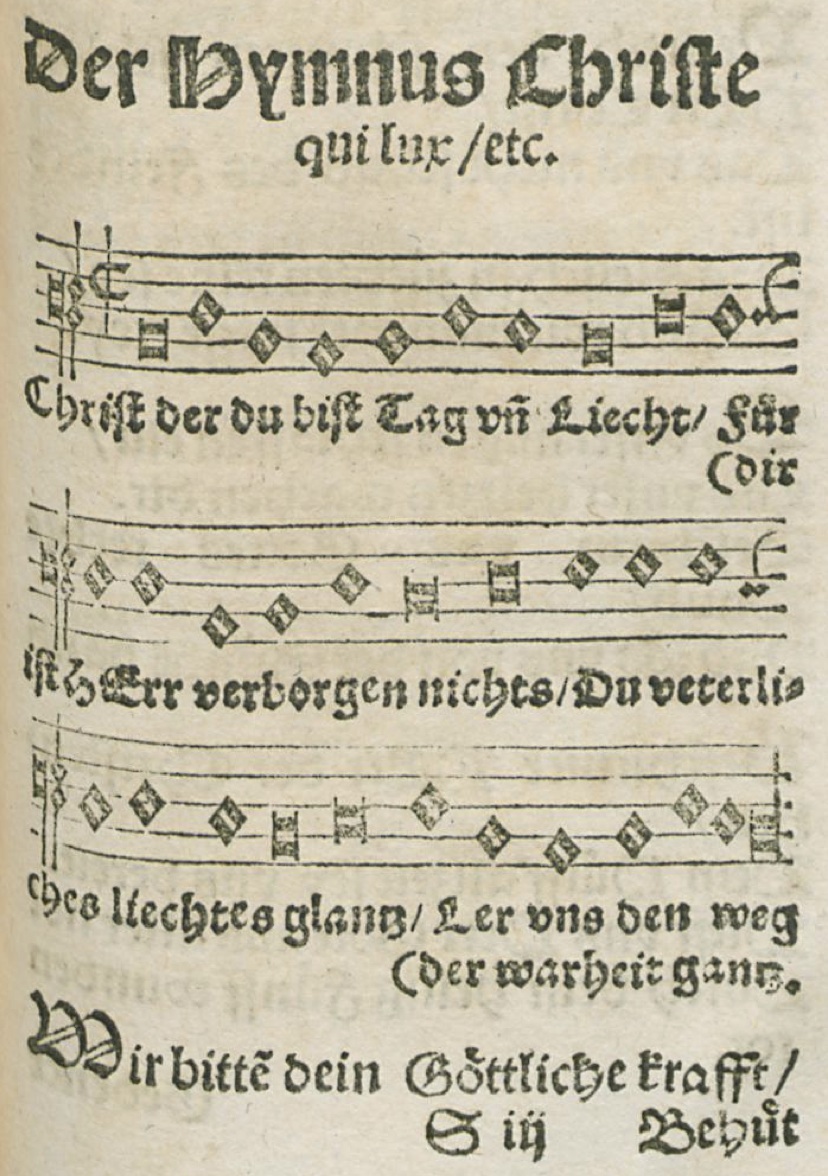 Der Hymnus Christe
qui lux / etc.
Christ der du bist Tag vñ Liecht / Für
(dir
ist HErr verborgen nichts / Du veterli⸗
ches liechtes glantz / Ler vns den weg
(der warheit gantz.
Wir bittẽ dein Göttliche krafft /
S iij Behüt